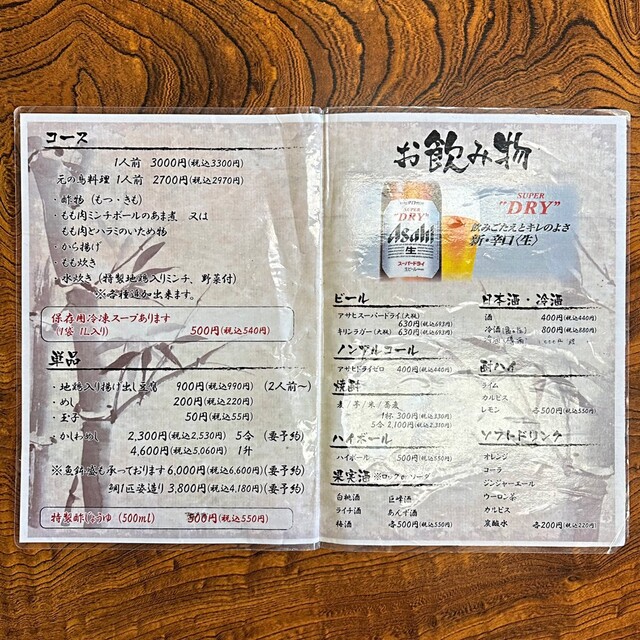 コース
1人前 3000円(税込3300円)
元の鳥料理 1人前 2700円(税込2970円)
・酢物(もつ・きも)
・もも肉ミンチボールのあま煮 又は
もも肉とハラミのいため物
・から揚げ
・もも炊き
・水炊き(特製地鶏入りミンチ、野菜付)
※各種追加出来ます。
保存用冷凍スープあります
(1袋 1L入り) 500円(税込540円)
単品
・地鶏入り揚げ出し豆腐 900円(税込990円) (2人前〜)
・めし 200円(税込220円)
・玉子 50円(税込55円)
・かしわめし 2,300円(税込2,530円) 5合 (要予約)
4,600円(税込5,060円) 1升
※魚鉢盛も承っております 6,000円(税込6,600円)(要予約)
鯛1匹姿造り 3,800円(税込4,180円)(要予約)
特製酢じょうゆ (500ml) 500円(税込550円)
お飲み物
SUPER
"DRY"
Asahi
生
スーパードライ
SUPER
"DRY"
飲みごたえとキレのよさ
新・辛口〈生〉
ビール
アサヒスーパードライ(大瓶)
630円(税込693円)
キリンラガー(大瓶) 630円(税込693円)
ノンアルコール
アサヒドライゼロ 400円(税込440円)
焼酎
麦/芋/米/蕎麦
1杯 300円(税込330円)
5合 2,100円(税込2,310円)
ハイボール
ハイボール 500円(税込550円)
果実酒 ※ロックor ソーダ
白桃酒 巨峰酒
ライチ酒 あんず酒
梅酒 各500円(税込550円)
日本酒・冷酒
酒 400円(税込440円)
冷酒 800円(税込880円)
酎ハイ
ライム
カルピス
レモン 各500円(税込550円)
ソフトドリンク
オレンジ
コーラ
ジンジャーエール
ウーロン茶
カルピス
炭酸水 各200円(税込220円)